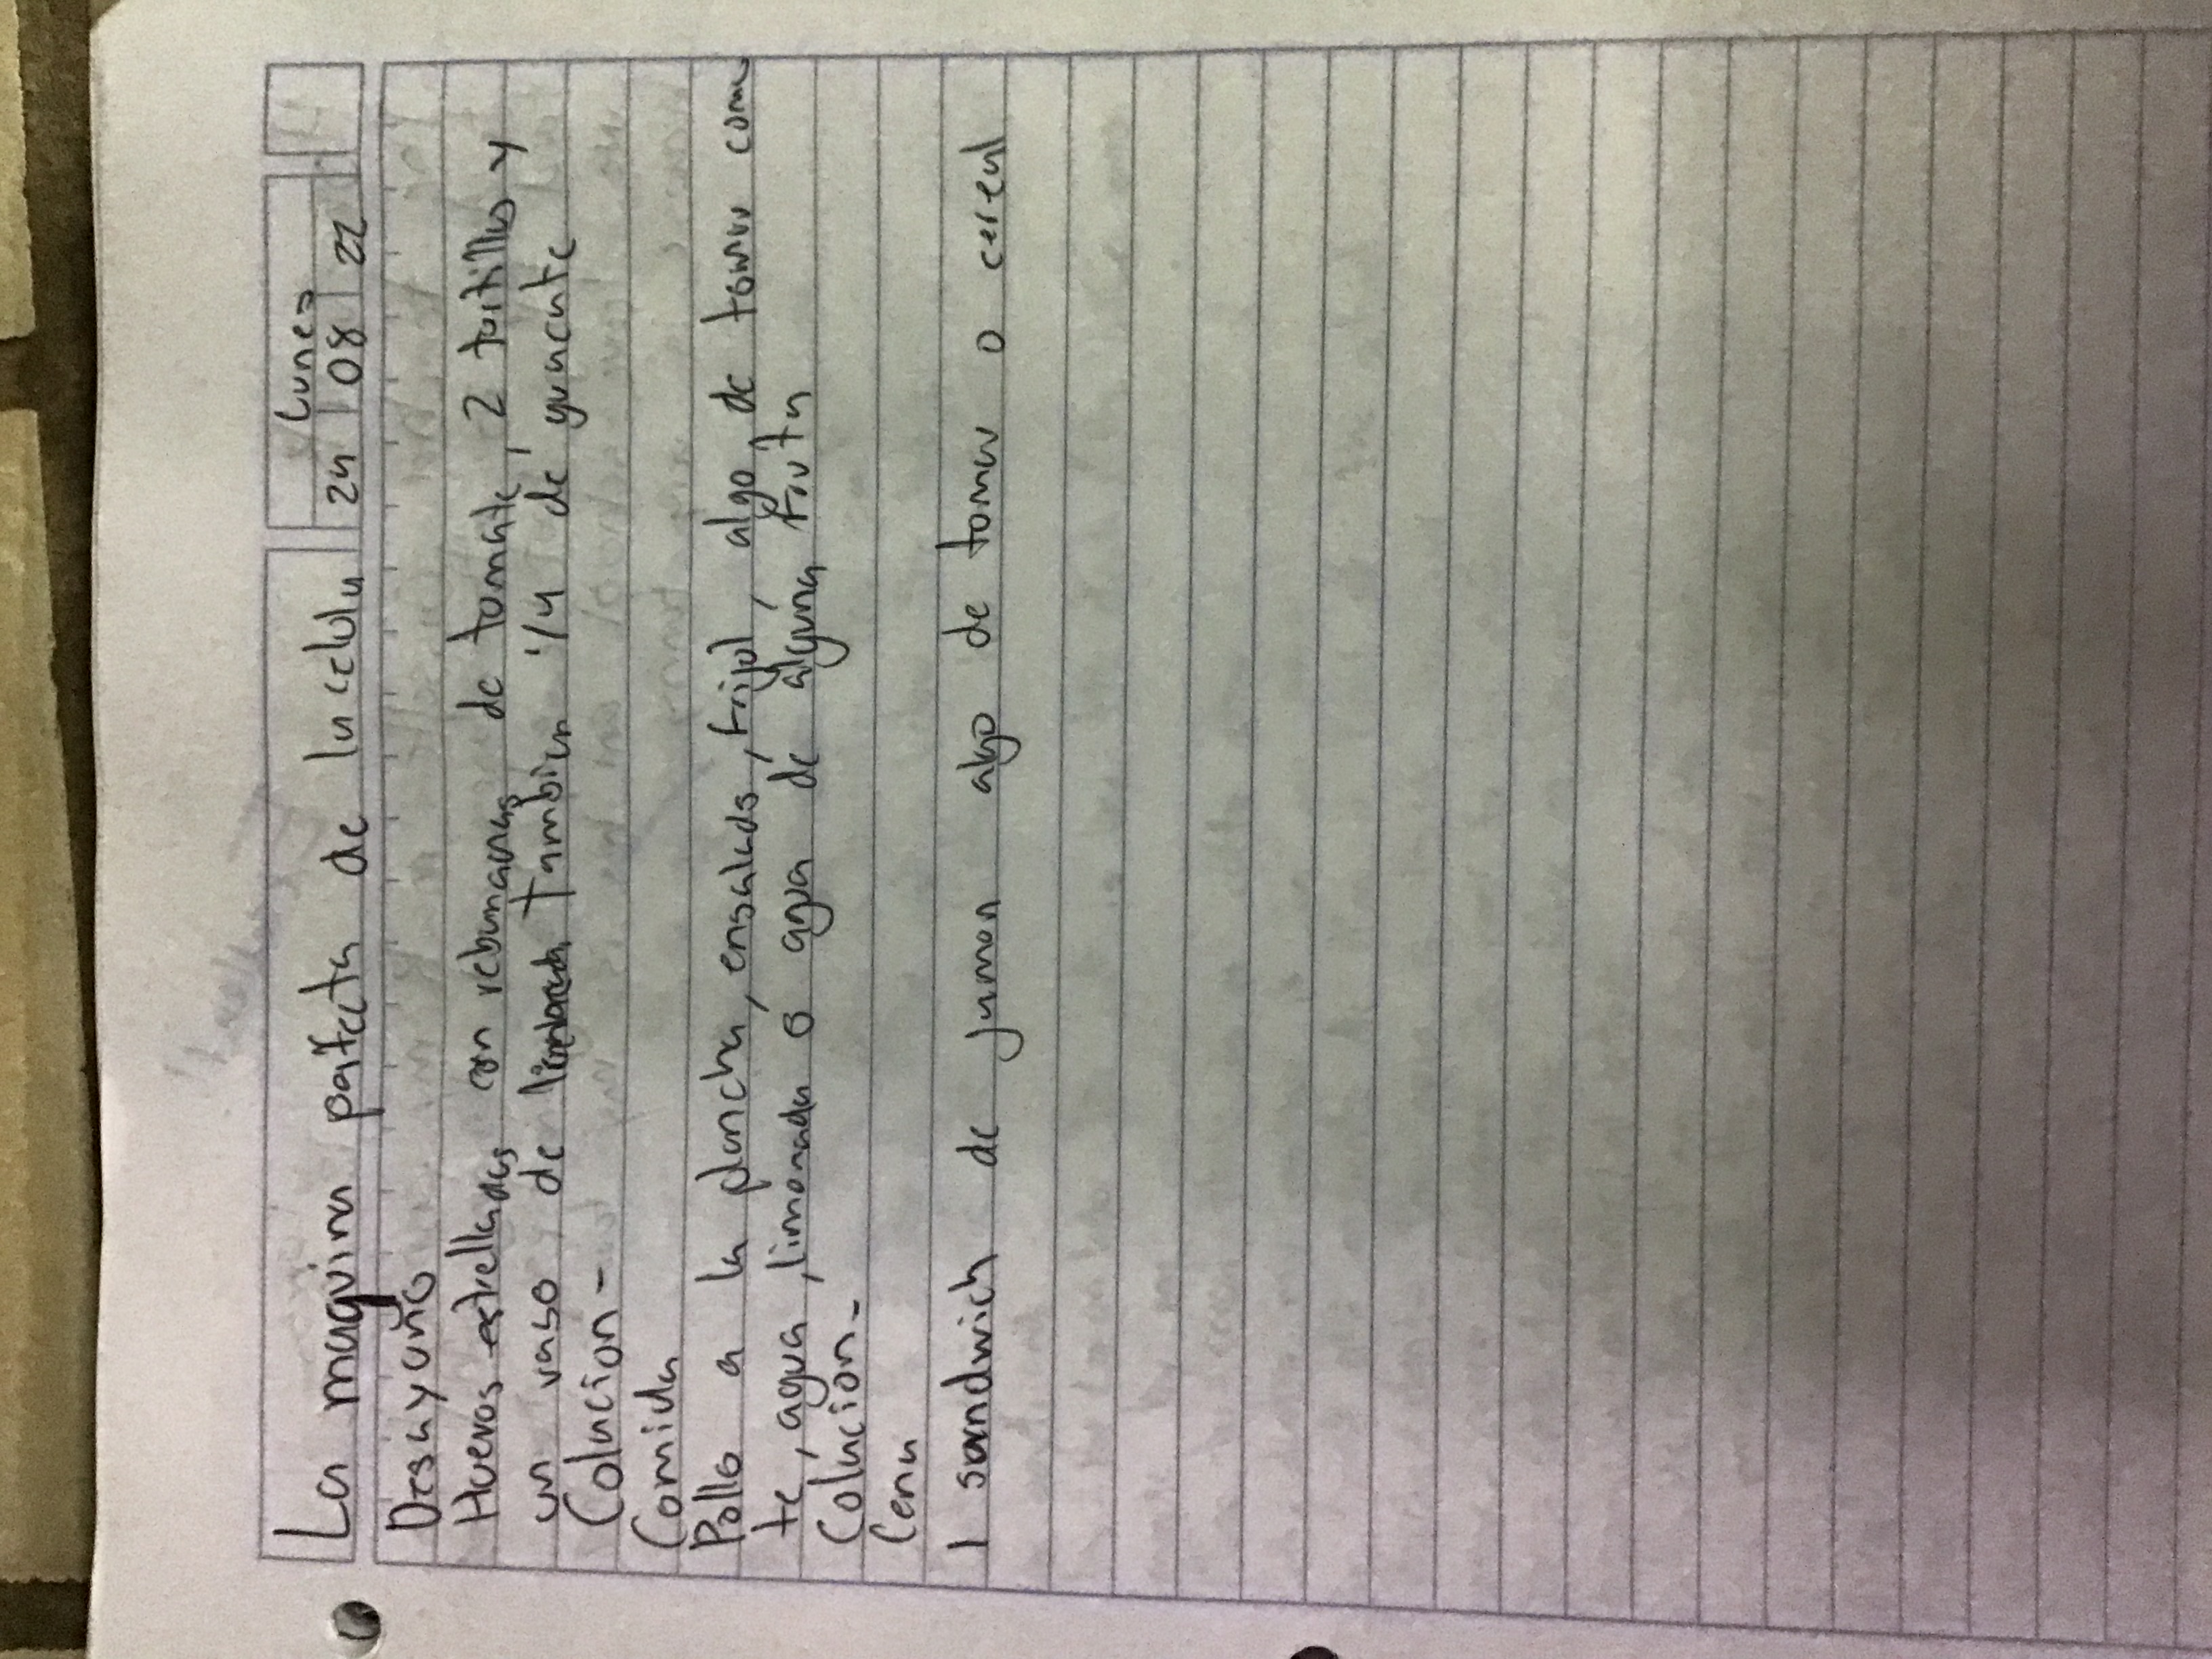 La maquina pefecta de la celula
Lunes
24 08 22
Desayuno
Huevos estrelladas con rebunanas de tomate, 2 tortillas y
un vaso de limonada Tambien 1/4 de guacate
Colacion-
Comida
Pollo a la plancha, ensalads, frijol, algo de tomar como
te, agua, limonada o agua de alguna fruta
Colacion-
Cena
1 sandwich de jamon algo de tomar o cereal